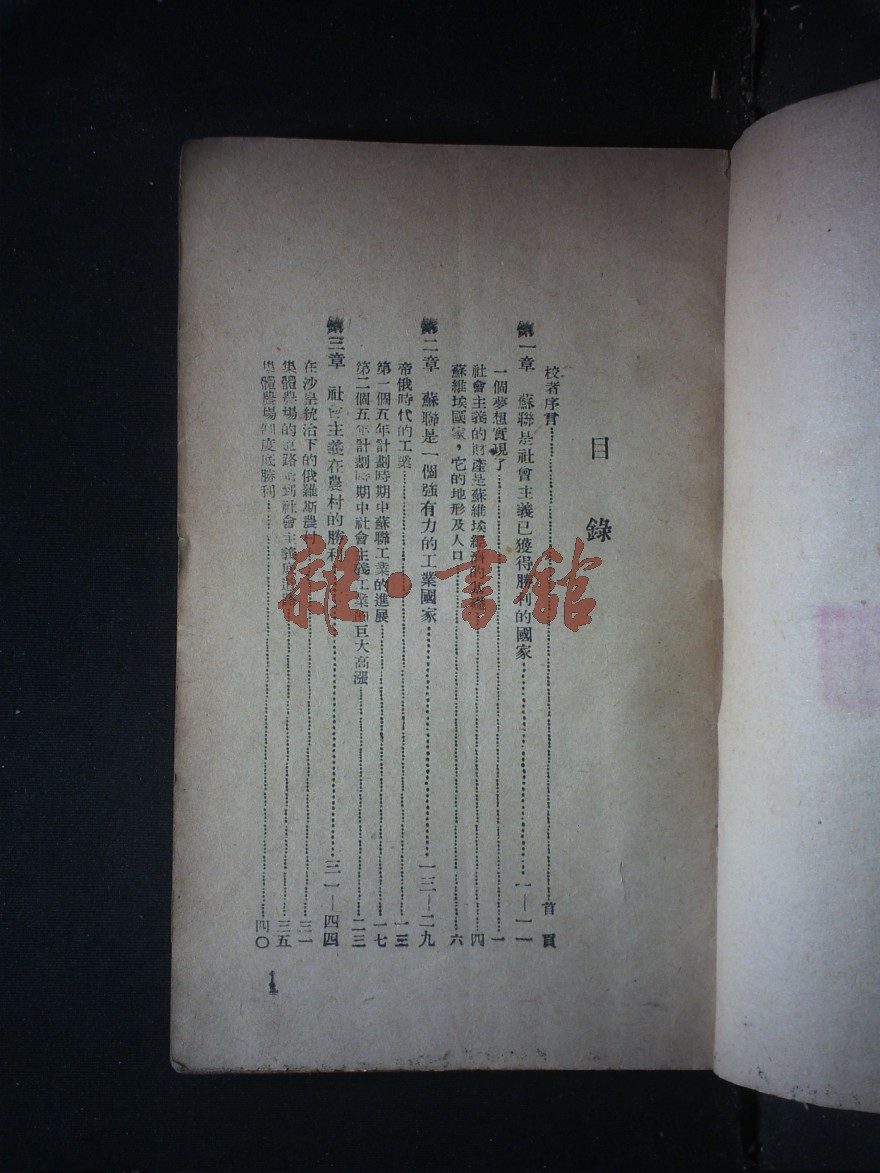 目錄
校者序言…………首頁
第一章 蘇聯是社會主義已獲得勝利的國家…………一—一一
一個夢想實現了…………一
社會主義的財產是蘇維埃經濟的基礎…………四
蘇維埃國家，它的地形及人口…………六
第二章 蘇聯是一個強有力的工業國家…………一三—二九
帝俄時代的工業…………一三
第一個五年計劃時期中蘇聯工業的進展…………一七
第二個五年計劃時期中社會主義工業的巨大高漲…………二三
第三章 社會主義在農村的勝利…………三一—四四
在沙皇統治下的俄羅斯農村…………三一
集體農場的道路 到社會主義底道路…………三五
集體農場制度底勝利…………四〇
1
雜·書館